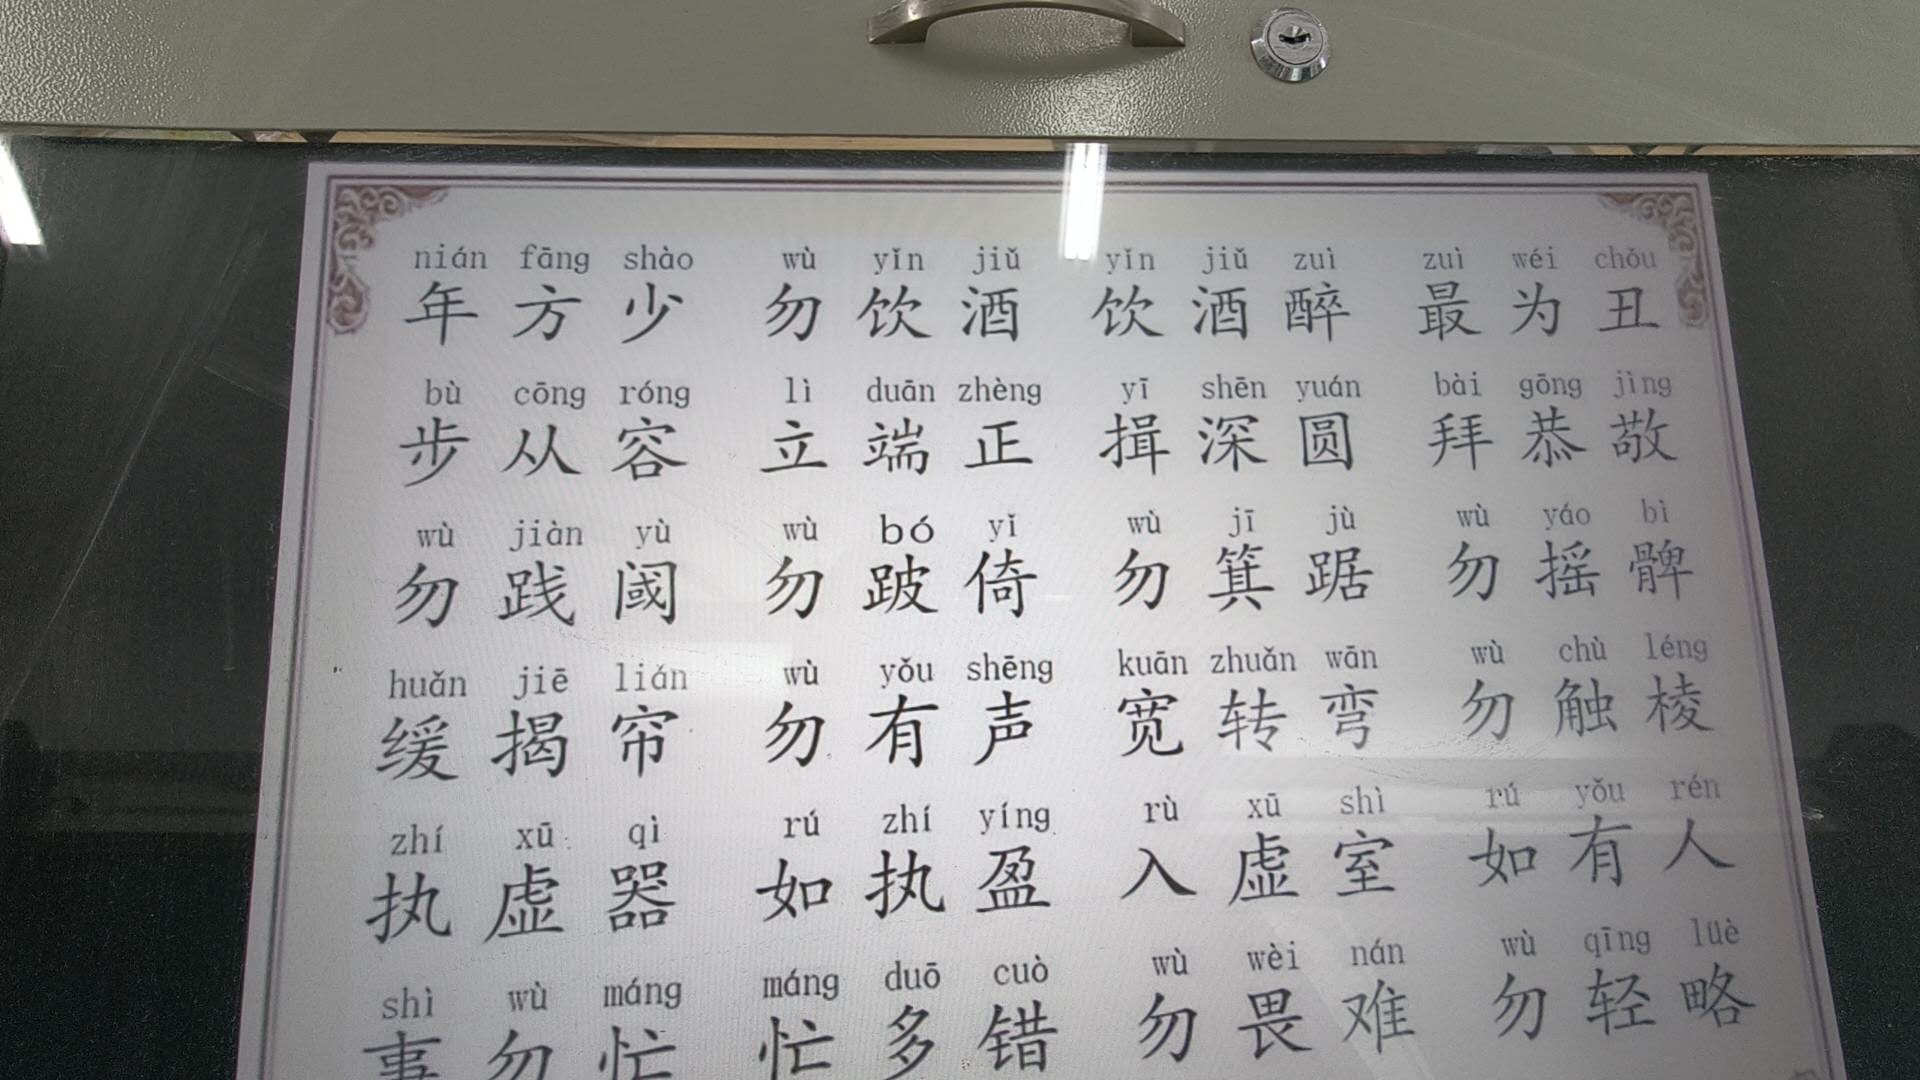 nián fāng shào wù yǐn jiǔ yǐn jiǔ zuì zuì wéi chǒu
年方少 勿饮酒 饮酒醉 最为丑
bù cōng róng lì duān zhèng yī shēn yuán bài gōng jìng
步从容 立端正 揖深圆 拜恭敬
wù jiàn yù wù bó yǐ wù jī jù wù yáo bì
勿践阈 勿跛倚 勿箕踞 勿摇髀
huǎn jiē lián wù yǒu shēng kuān zhuǎn wān wù chù léng
缓揭帘 勿有声 宽转弯 勿触棱
zhí xū qì rú zhí yíng rù xū shì rú yǒu rén
执虚器 如执盈 入虚室 如有人
shì wù máng máng duō cuò wù wèi nán wù qīng luè
事勿忙 忙多错 勿畏难 勿轻略